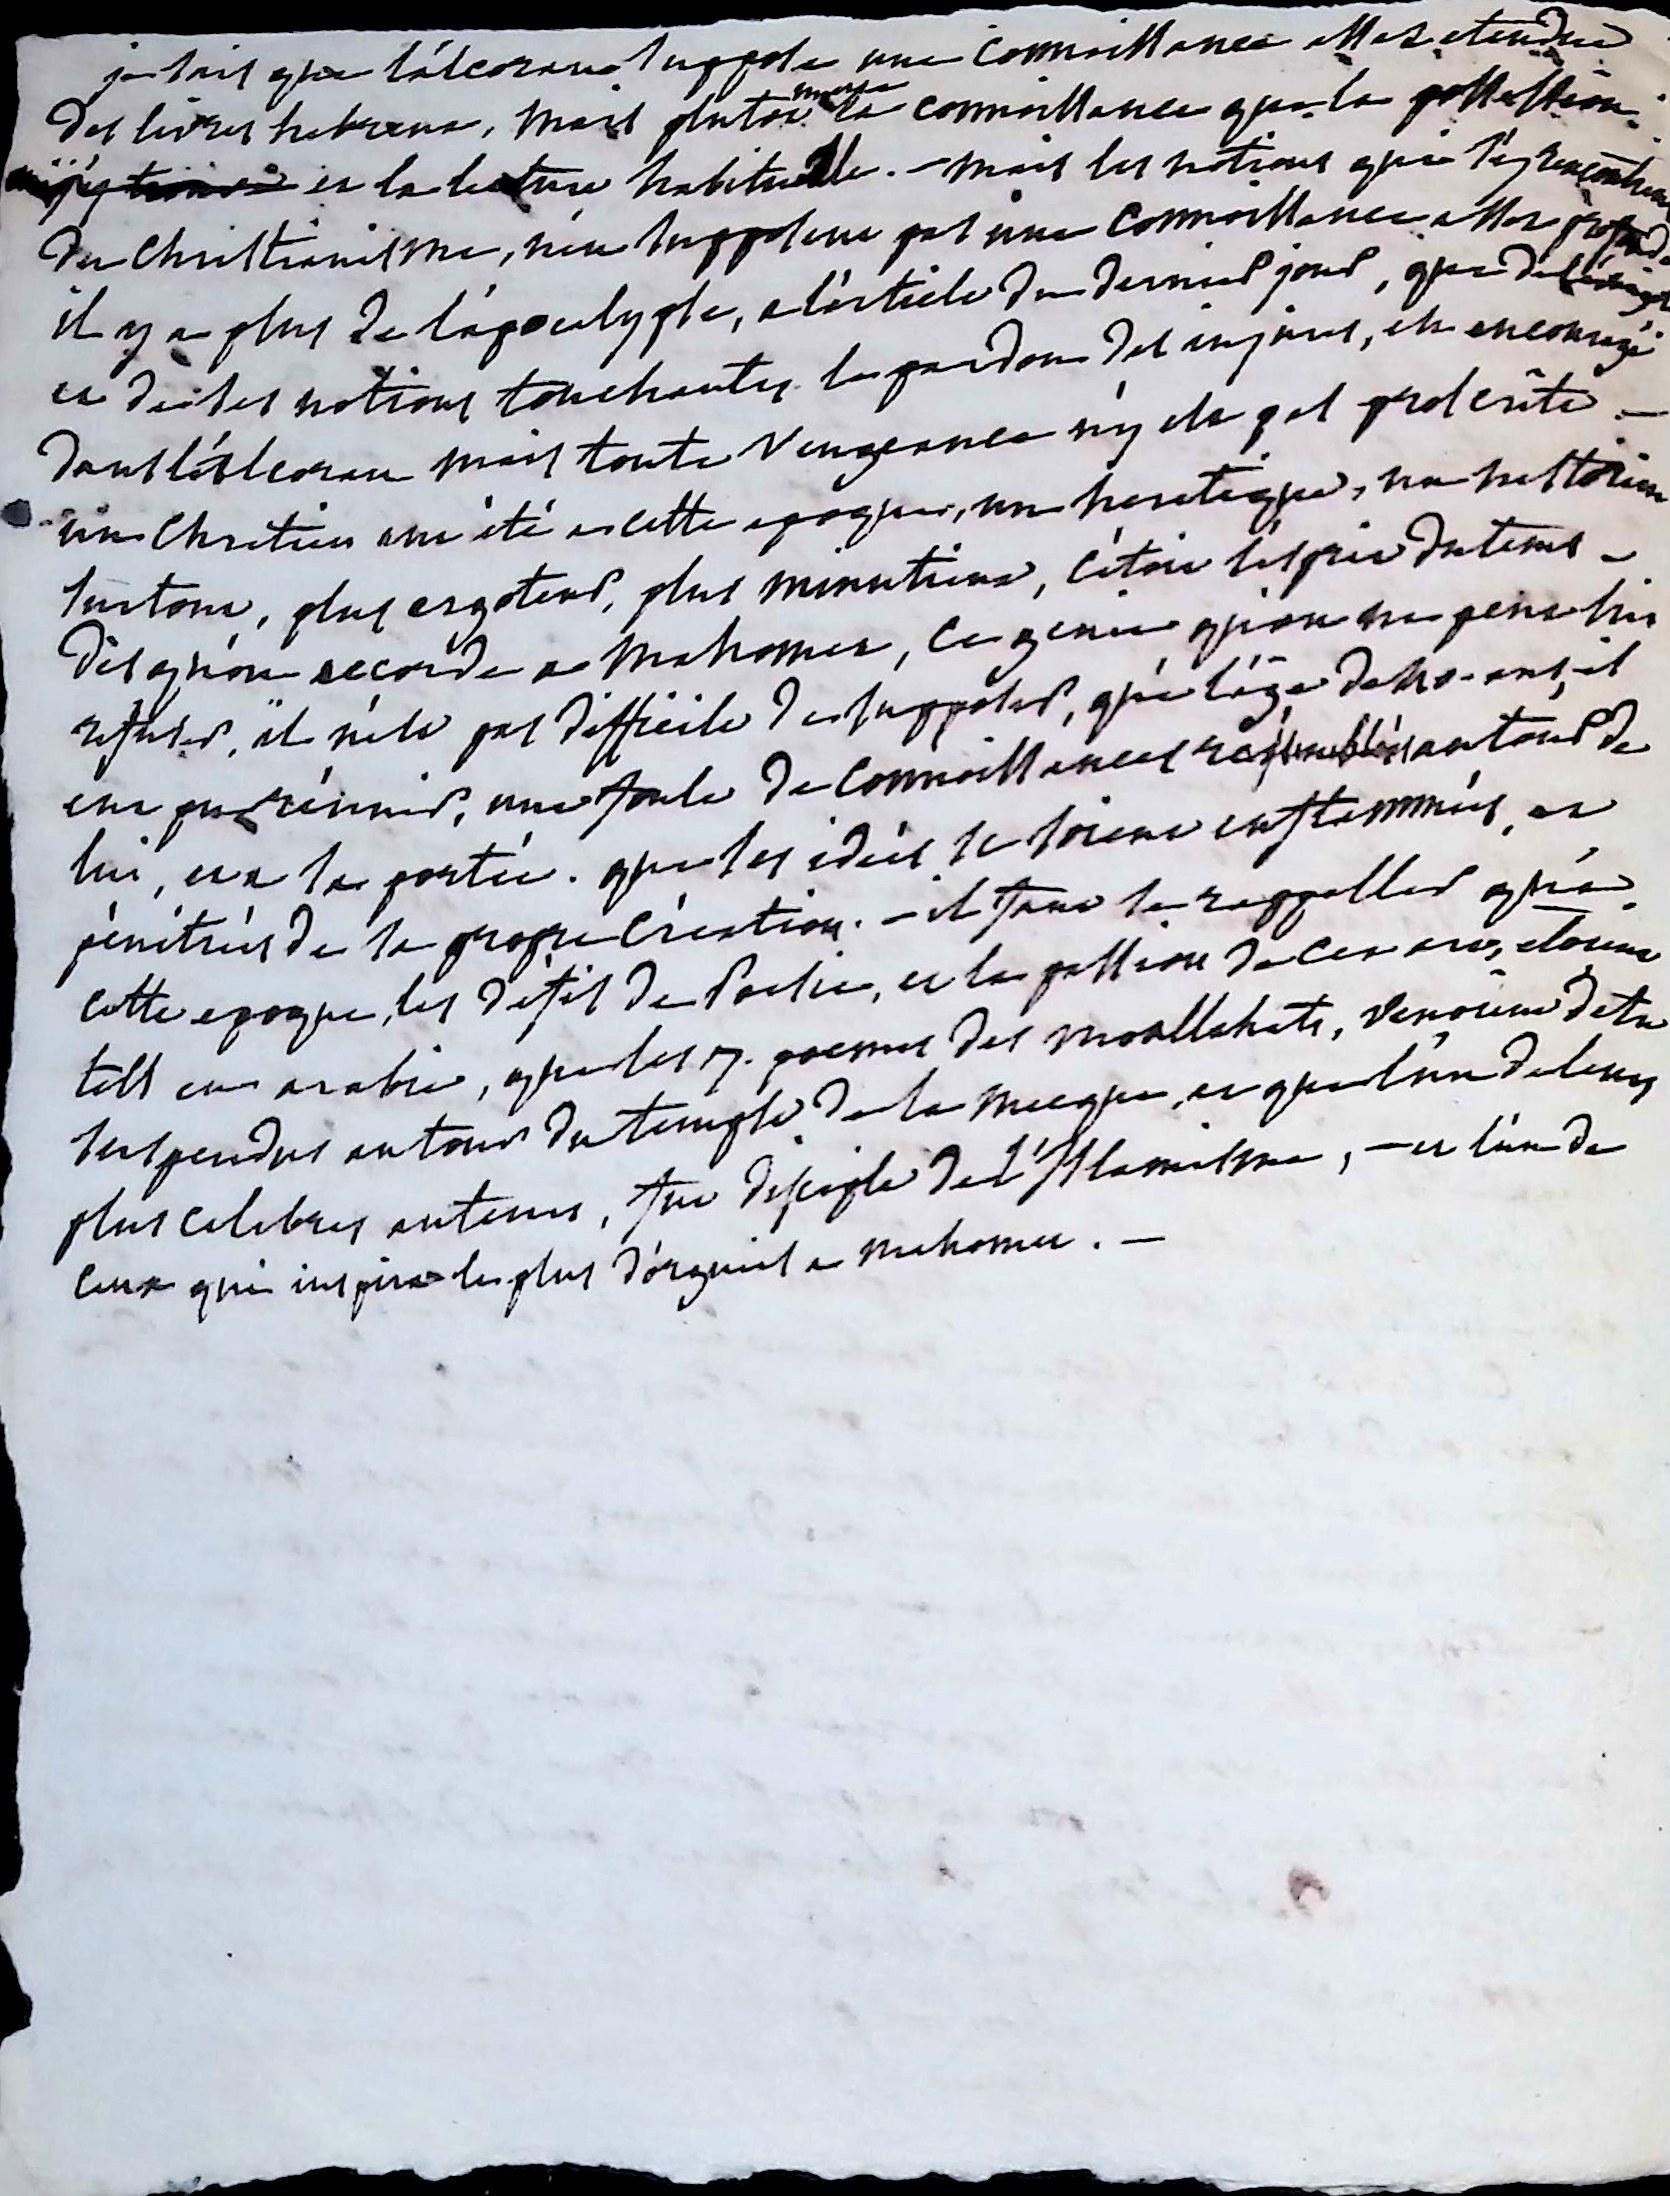 je sais que l'alcoran suppose une connoissance assez etendue
des livres hebreux, mais plutot la connoissance que la possession
et la lecture habituelle. – mais les notions qui s'y rencontrent
du christianisme, n'en supposent pas une connoissance assez profonde
il y a plus de l'apocalypse, a l'article du dernier jour, que de l'évangile
et de ses notions touchantes. le pardon des injures, est encouragé
dans l'alcoran mais toute vengeance n'y est pas proscrite –
un chretien eut été a cette epoque, un heretique, un nestorien
surtout, plus ergoteur, plus minutieux, c'étoit l'esprit du tems –
dès qu'on accorde a Mahomet, ce genie qu'on ne peut lui
refuser, il n'est pas difficile de supposer, qu'a l'âge de 40. ans, il
eut pu réunir, une foule de connoissances autour de
lui, et a sa portée. que ses idées se soient enflammées, et
pénétrées de sa propre création. – il faut se rappeller qu'a
cette epoque, les défis de Poesie, et la passion de cet art, etoient
tels en arabie, que les 7. poemes des moallakats, venoient d'etre
suspendus autour du temple de la mecque, et que l'un de leurs
plus celebres auteurs, fut disciple de l'Islamisme, – et l'un de
ceux qui inspira le plus d'orgueil a Mahomet. –